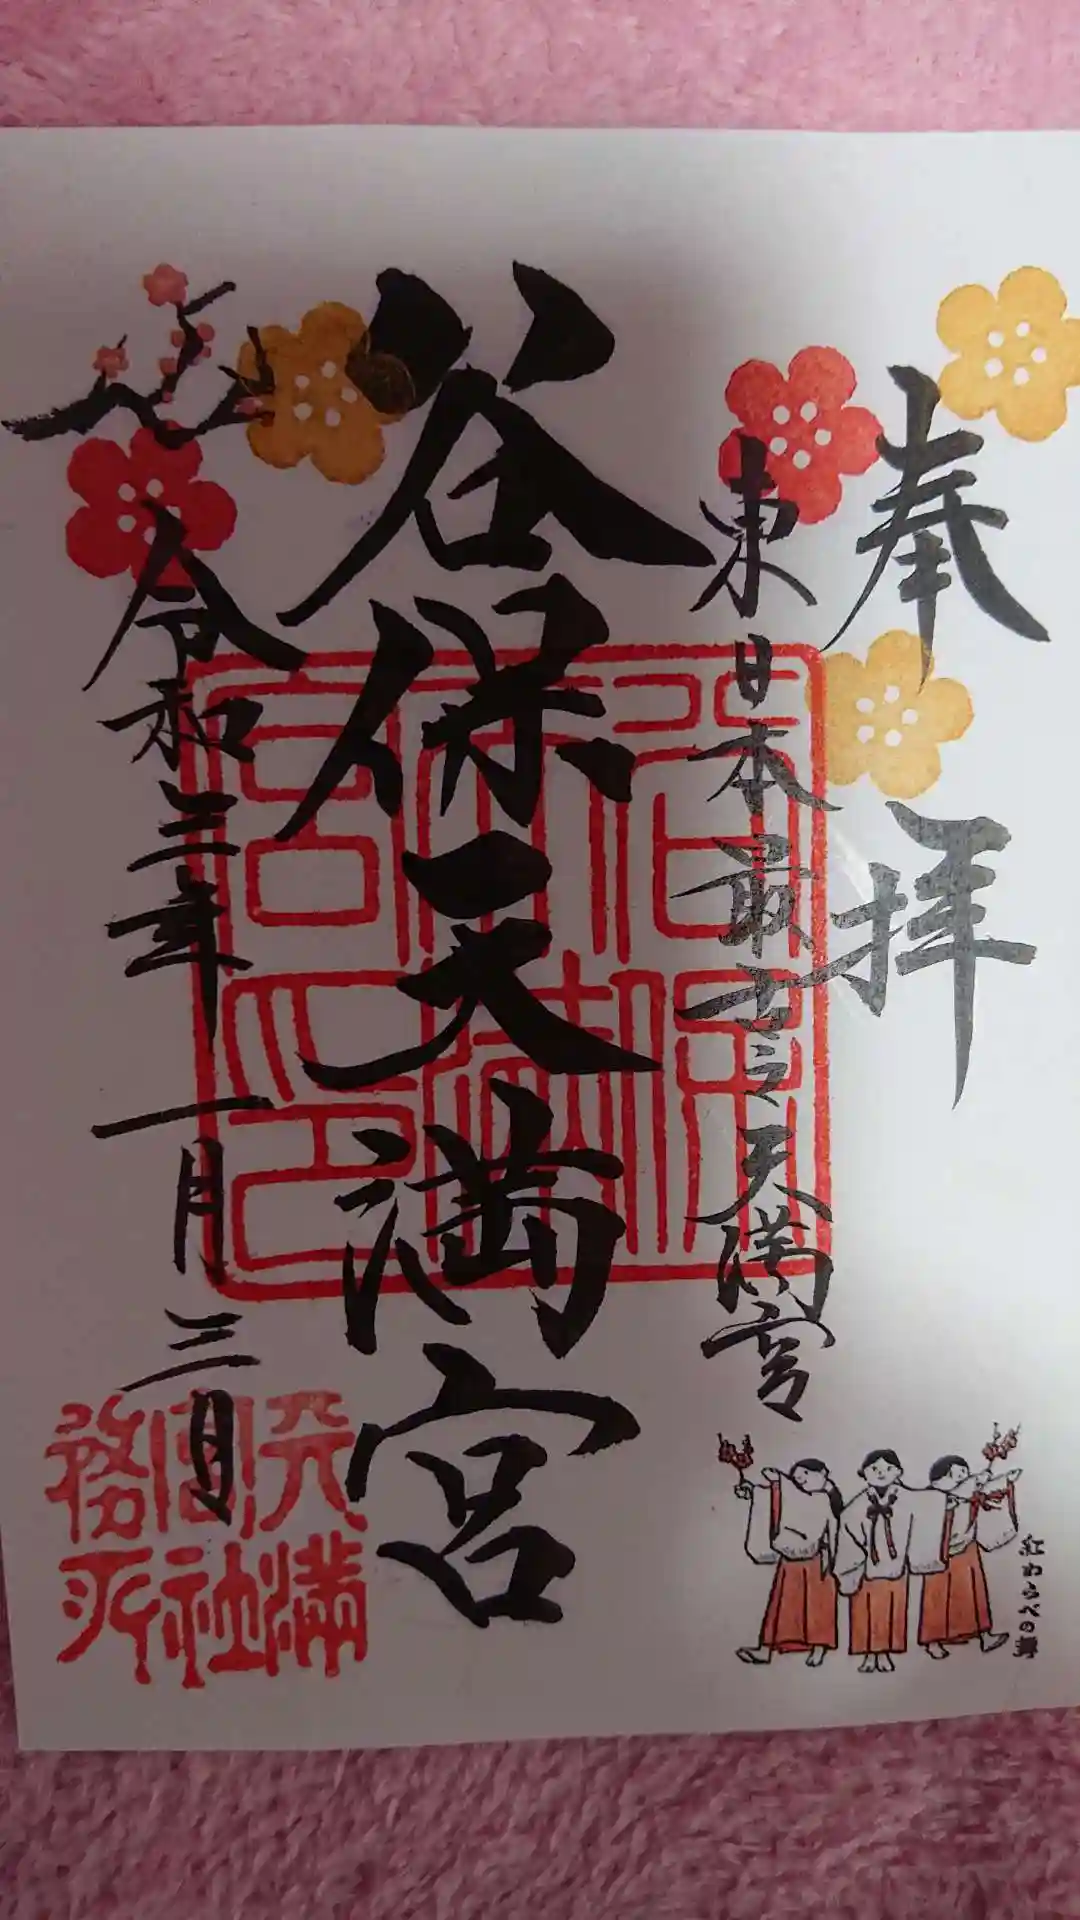 奉拝
東日本最古之天満宮
谷保天満宮
令和三年一月三日
紅わらべの舞
天満
宮社
務所